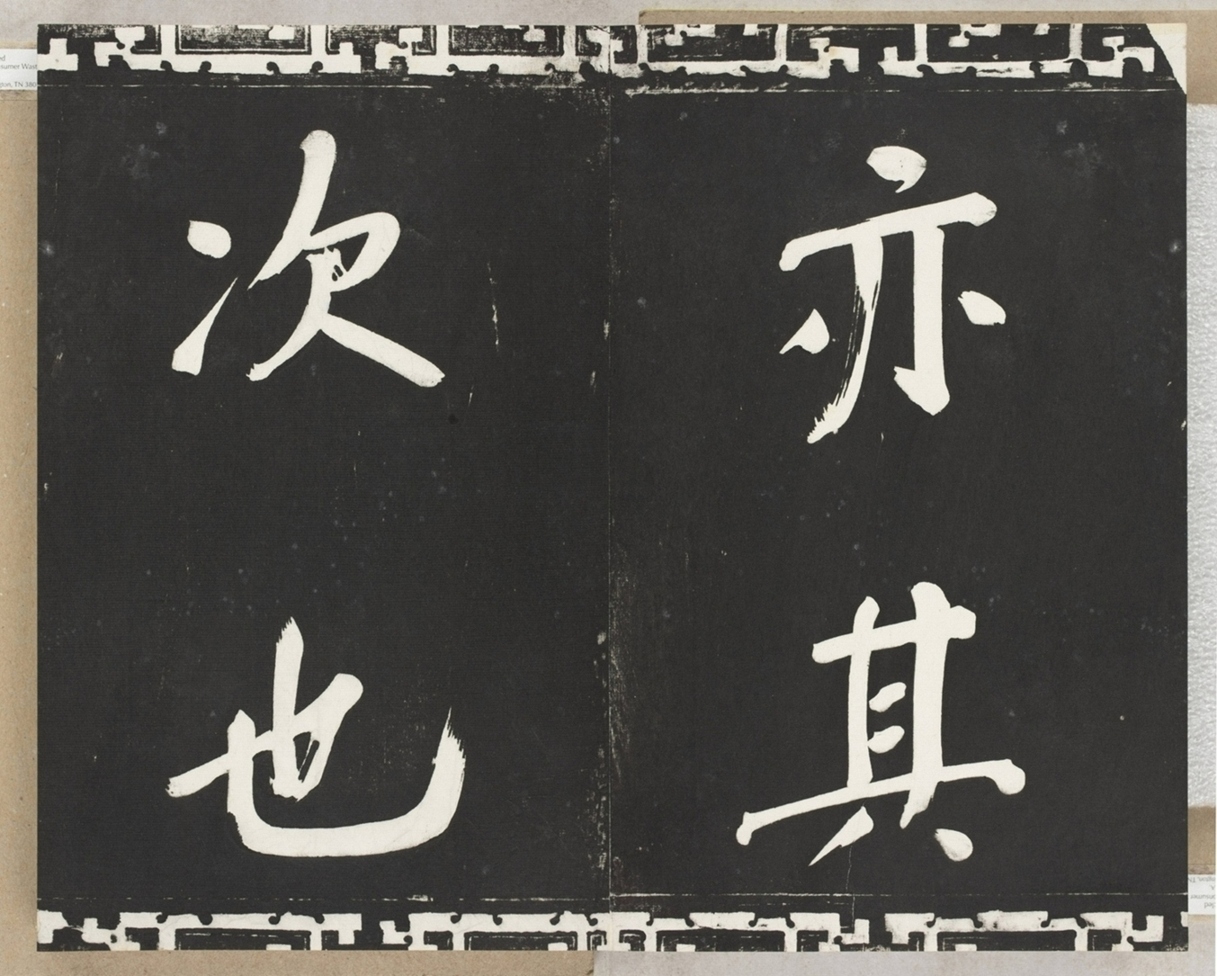 亦其
次也